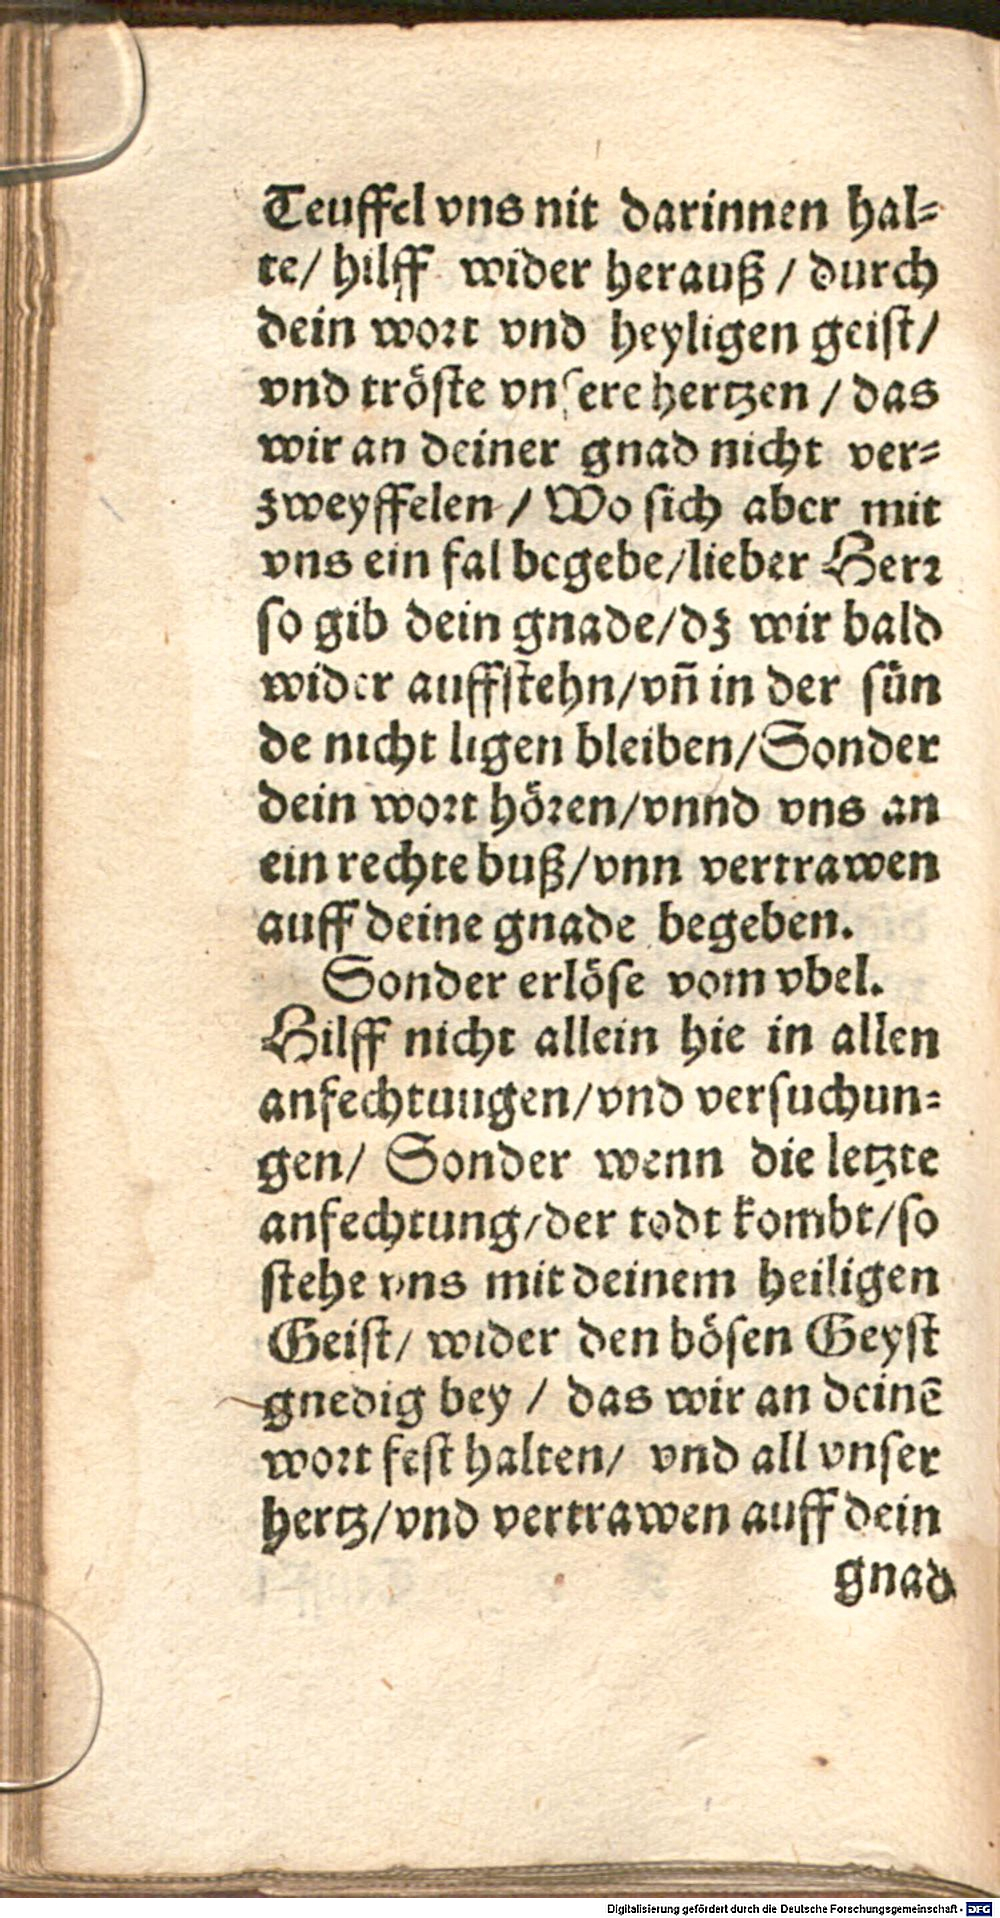 Teuffel vns nit darinnen hal⸗
te/ hilff wider herauß / durch
dein wort vnd heyligen geist/
vnd tröste vnsere hertzen / das
wir an deiner gnad nicht ver⸗
zweyffelen / Wo sich aber mit
vns ein fal begebe/lieber Herr
so gib dein gnade/dz wir bald
wider auffstehn/vñ in der sün
de nicht ligen bleiben/Sonder
dein wort hören/vnnd vns an
ein rechte buß/vnn vertrawen
auff deine gnade begeben.
Sonder erlöse vom vbel.
Hilff nicht allein hie in allen
anfechtuugen/vnd versuchun⸗
gen/ Sonder wenn die letzte
anfechtung/der todt kombt/so
stehe vns mit deinem heiligen
Geist/ wider den bösen Geyst
gnedig bey / das wir an deinē
wort fest halten/ vnd all vnser
hertz/vnd vertrawen auff dein
gnad
Digitalisierung gefördert durch die Deutsche Forschungsgemeinschaft - DFG